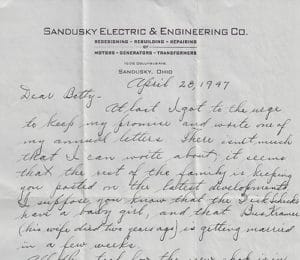 SANDUSKY ELECTRIC & ENGINEERING CO.
REDESIGNING - REBUILDING - REPAIRING
OF
MOTORS - GENERATORS - TRANSFORMERS
SANDUSKY, OHIO
April 28, 1947
Dear Betty -
At last I got to the urge
to keep my promise and write one of
my annual letters. There isn't much
that I can write about, it seems
that the rest of the family is keeping
you posted on the latest developments.
I suppose you know that the
have a baby girl, and that Bus Kramer
(his wife died two years ago) is getting married
in a few weeks.